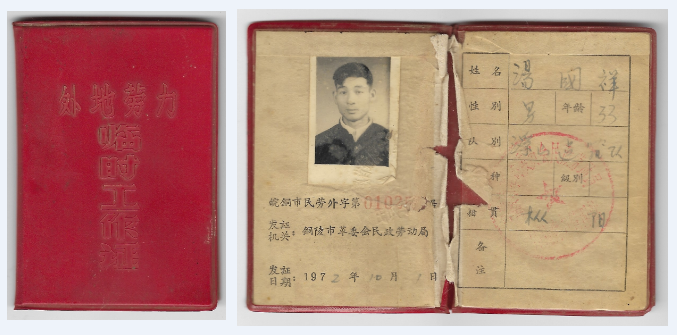 外地劳力
临时工作证
皖铜市民劳外字第01025号
发证机关：铜陵市革委会民政劳动局
发证日期：1972年10月1日
姓名 湯國祥
性别 男 年龄 33
队别
种 级别
籍贯 枞阳
备注